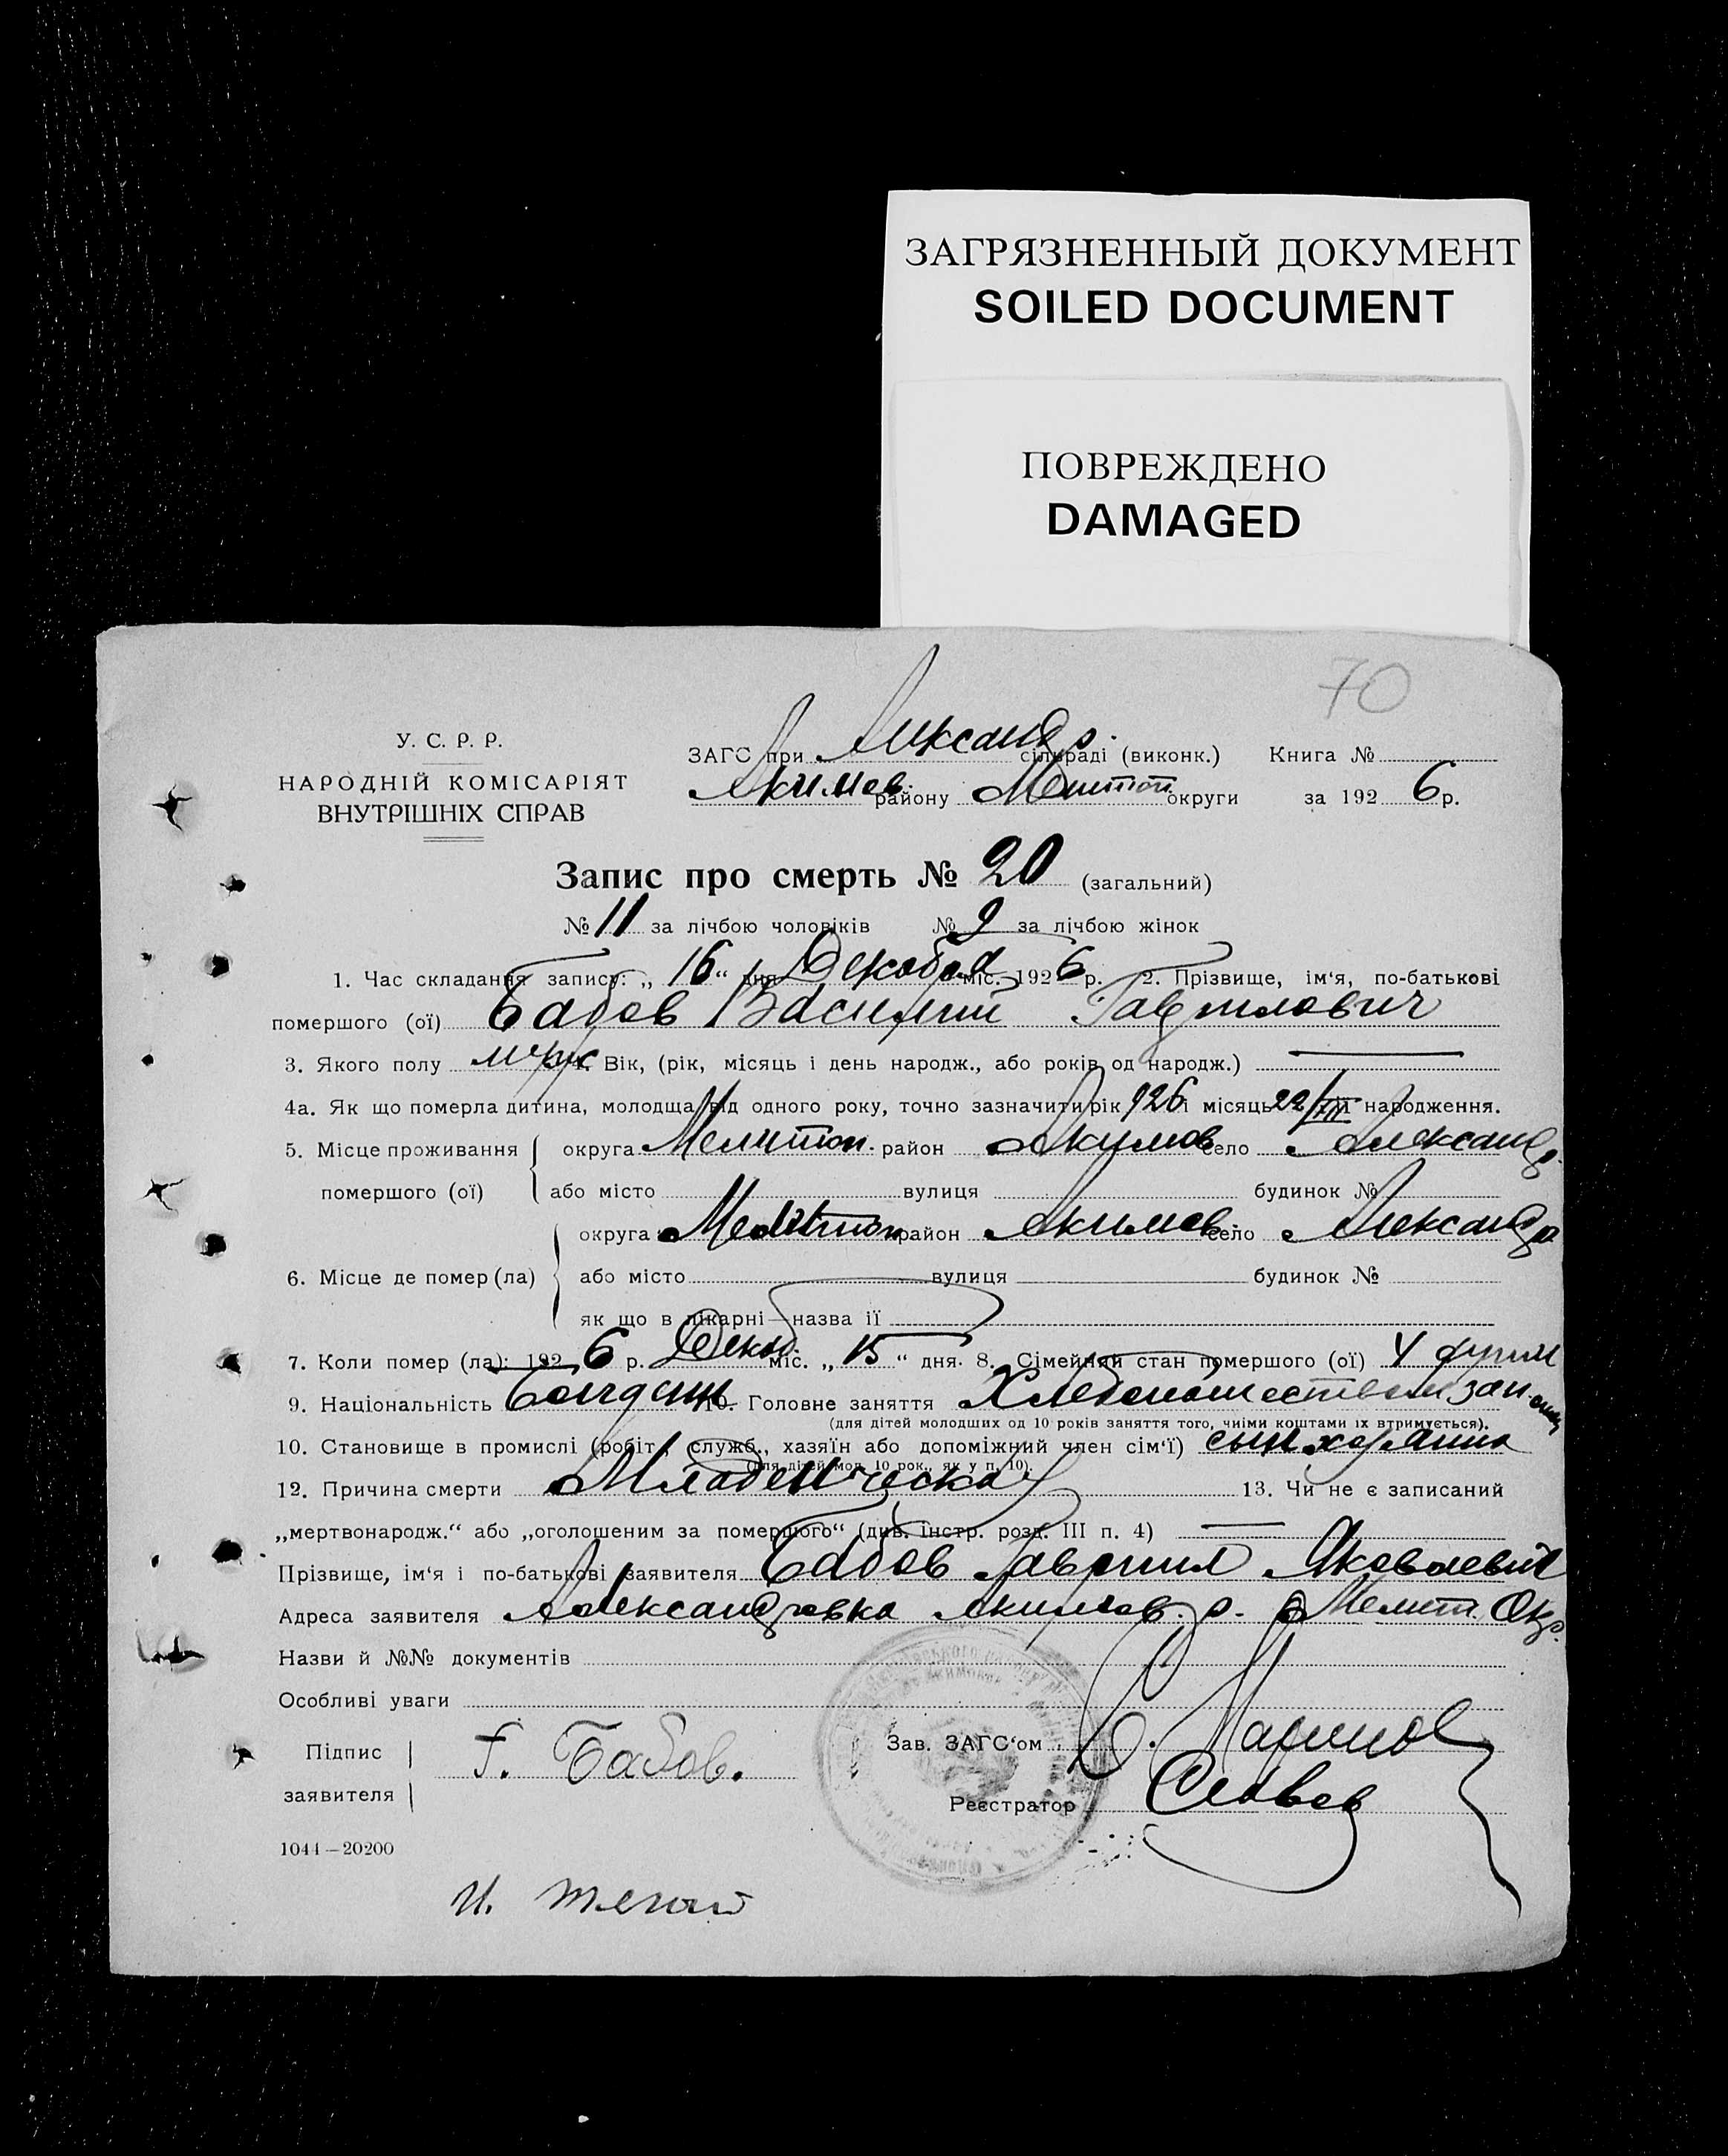 ЗАГРЯЗНЕННЫЙ ДОКУМЕНТ
SOILED DOCUMENT
ПОВРЕЖДЕНО
DAMAGED
70
У. С. Р. Р.
НАРОДНІЙ КОМІСАРІЯТ
ВНУТРІШНІХ СПРАВ
ЗАГС при Александр. сільраді (виконк.) Книга №
Акимов. району Мелитоп округи за 192 6 р.
Запис про смерть № 20 (загальний)
№ 11 за лічбою чоловіків № 9 за лічбою жінок
1. Час складання запису: „ 16 “ дня Декабря міс. 192 6 р. 2. Прізвище, ім'я, по-батькові
помершого (ої) Бабов Василий Гаврилович
3. Якого полу муж 4. Вік, (рік, місяць і день народж., або років од народж.)
4а. Як що померла дитина, молодша від одного року, точно зазначити рік 926 і місяць 22/VII народження.
5. Місце проживання округа Мелитоп. район Акимов село Александр.
помершого (ої) або місто вулиця будинок №
округа Мелитоп район Акимов. село Александр
6. Місце де помер (ла) або місто вулиця будинок №
як що в лікарні—назва її
7. Коли помер (ла): 192 6 р. Декаб міс. „ 15 “ дня. 8. Сімейний стан помершого (ої)
9. Національність 10. Головне заняття
(для дітей молодших од 10 років заняття того, чиїми коштами їх втримується).
10. Становище в промислі (робіт., служб., хазяїн або допоміжний член сім'ї) сын хозяина
(для дітей мол. 10 рок., як у п. 10).
12. Причина смерти Младенческая 13. Чи не є записаний
„мертвонародж.“ або „оголошеним за помершого“ (див. інстр. розд. III п. 4)
Прізвище, ім'я і по-батькові заявителя Бабов Гавриил Яковлевич
Адреса заявителя Александровка Акимов. р. Мелит. Окр.
Назви й №№ документів
Особливі уваги
Підпис
заявителя
Г. Бабов.
Зав. ЗАГС'ом
Реєстратор
1044—20200